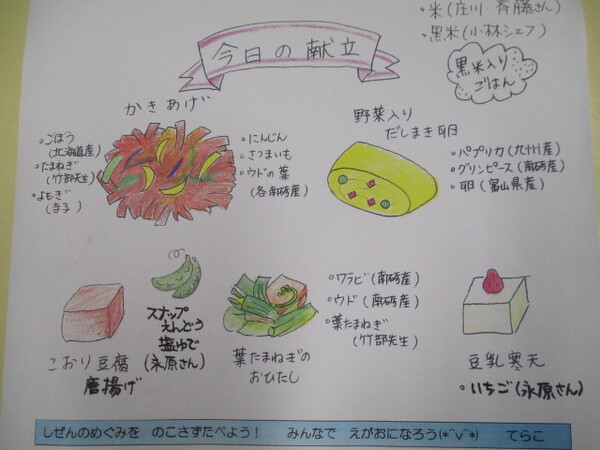 ・米(庄川 斉藤さん)
・黒米(小林シェフ)
今日の献立
黒米入り
ごはん
かきあげ
・ごぼう
(北海道産)
・たまねぎ
(竹部先生)
・よもぎ
(寺子)
・にんじん
・さつまいも
・ウドの葉
(各南砺産)
野菜入り
だしまき卵
・パプリカ(九州産)
・グリンピース(南砺産)
・卵(富山県産)
こおり豆腐
唐揚げ
スナップ
えんどう
塩ゆで
(永原さん)
葉たまねぎの
おひたし
・ワラビ(南砺産)
・ウド(南砺産)
・葉たまねぎ
(竹部先生)
豆乳寒天
・いちご(永原さん)
しぜんのめぐみを のこさずたべよう! みんなで えがおになろう(*^v^*) てらこ